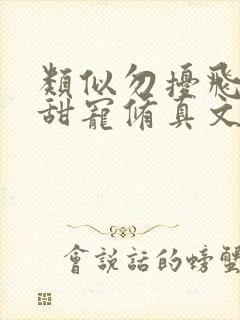 類似勿擾飛
甜寵脩真文
會說話的螃蟹